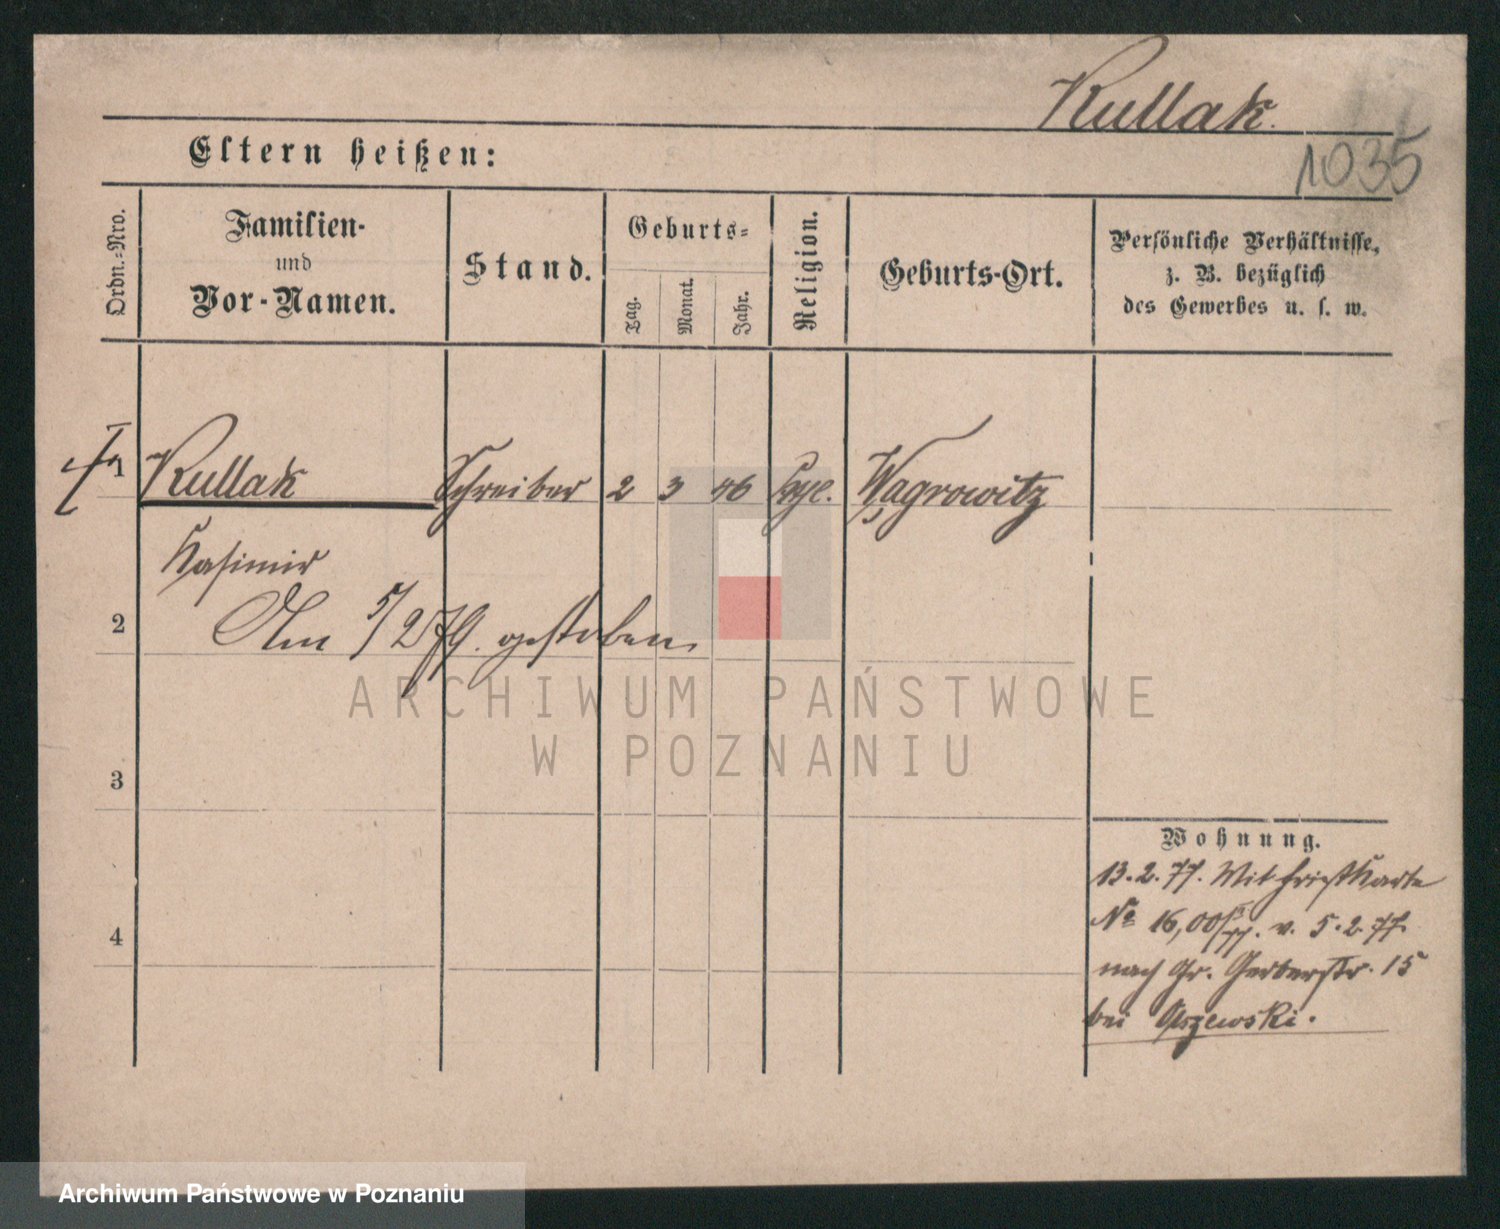 Kullak.
1035
Eltern heißen:
Ordn.-Nro.
Familien-
und
Vor-Namen.
Stand.
Geburts-
Tag.
Monat.
Jahr.
Religion.
Geburts-Ort.
Persönliche Verhältnisse,
z. B. bezüglich
des Gewerbes u. s. w.
1 Kullak Schreiber 2 3 46 Wągrowitz
Kasimir
2 Am 5/2 79. gestorben.
ARCHIWUM PAŃSTWOWE
W POZNANIU
3
Wohnung.
13.2.77. Mit
No 16,00 v. 5.2.77
4
nach Gr. Gerberstr. 15
bei
Archiwum Państwowe w Poznaniu